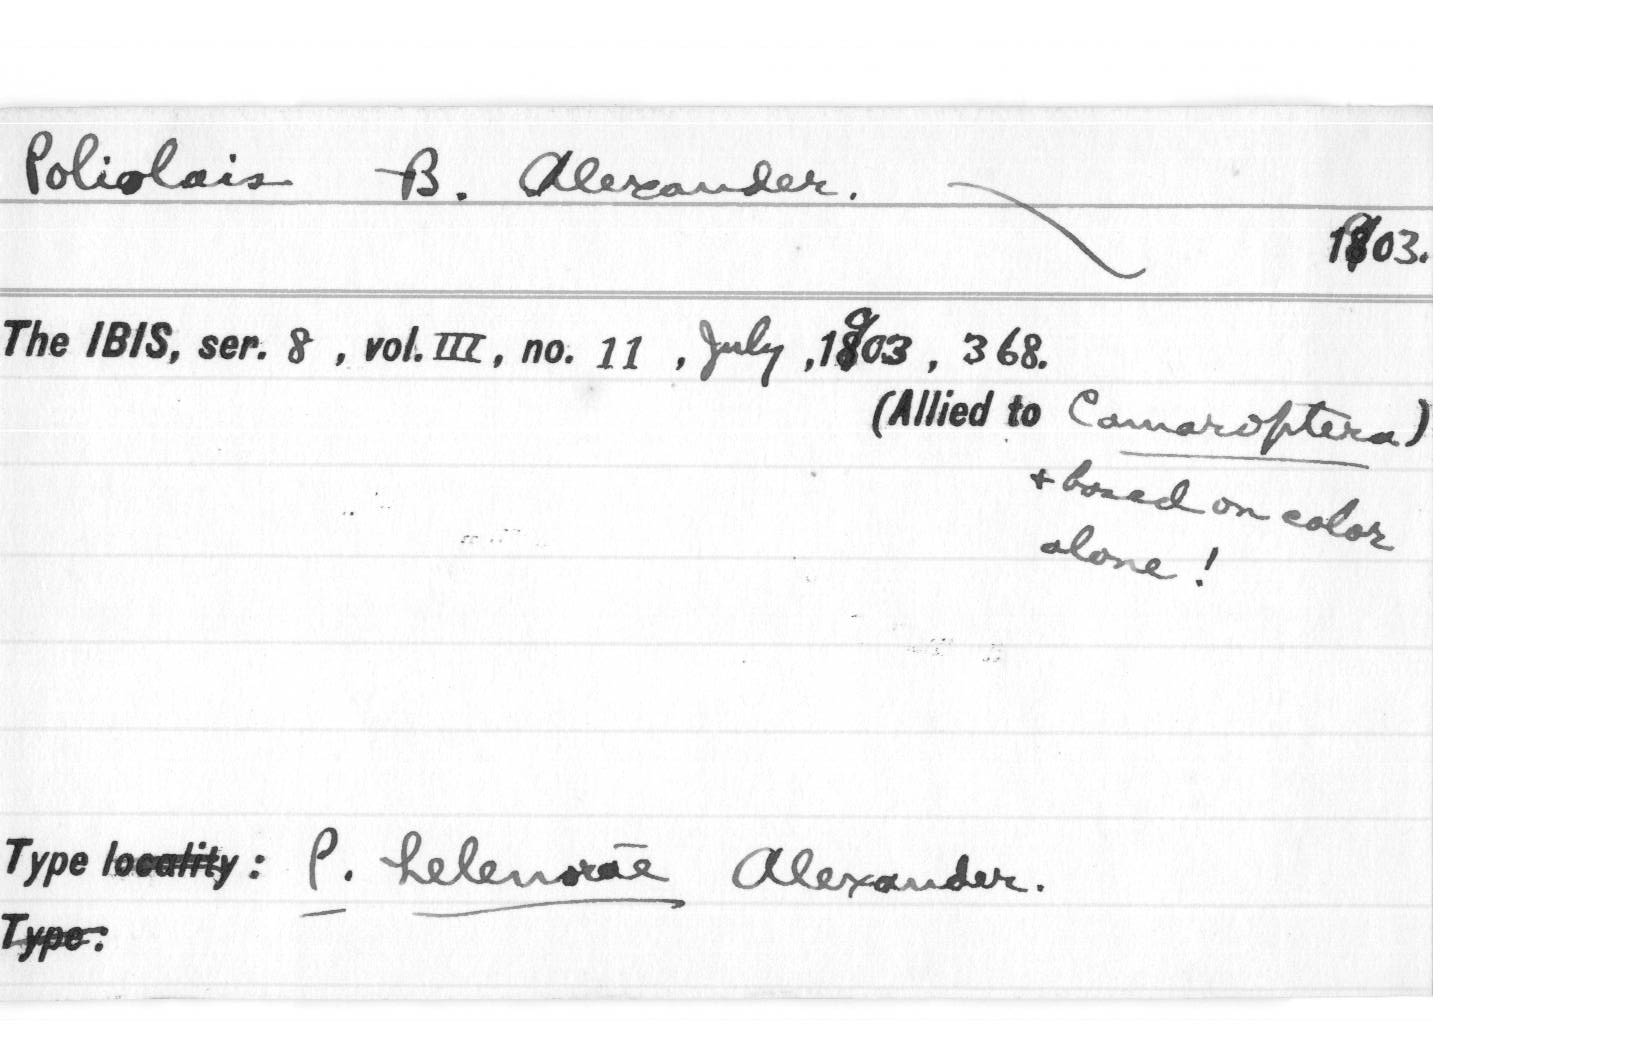 Poliolais B. Alexander.
1903.
The IBIS, ser. 8, vol. III, no. 11, July, 1903, 368.
(Allied to Camaroptera)
+ based on color
alone!
Type locality: P. helenorae Alexander.
Type: